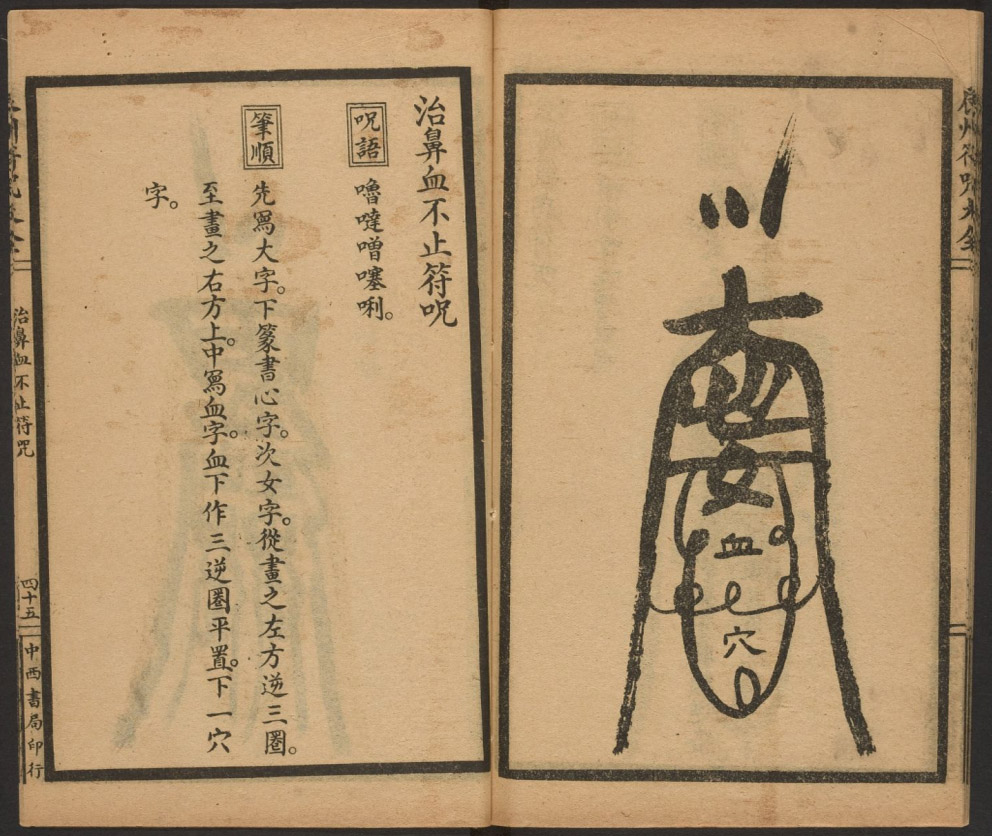 治鼻血不止符呪
呪語
嚕噠噌噻唎。
筆順
先寫大字。下篆書心字。次女字。從畫之左方逆三圈。
至畫之右方上。中寫血字。血下作三逆圈平置。下一穴
字。
治鼻血不止符呪
四十五
中西書局印行
血
穴